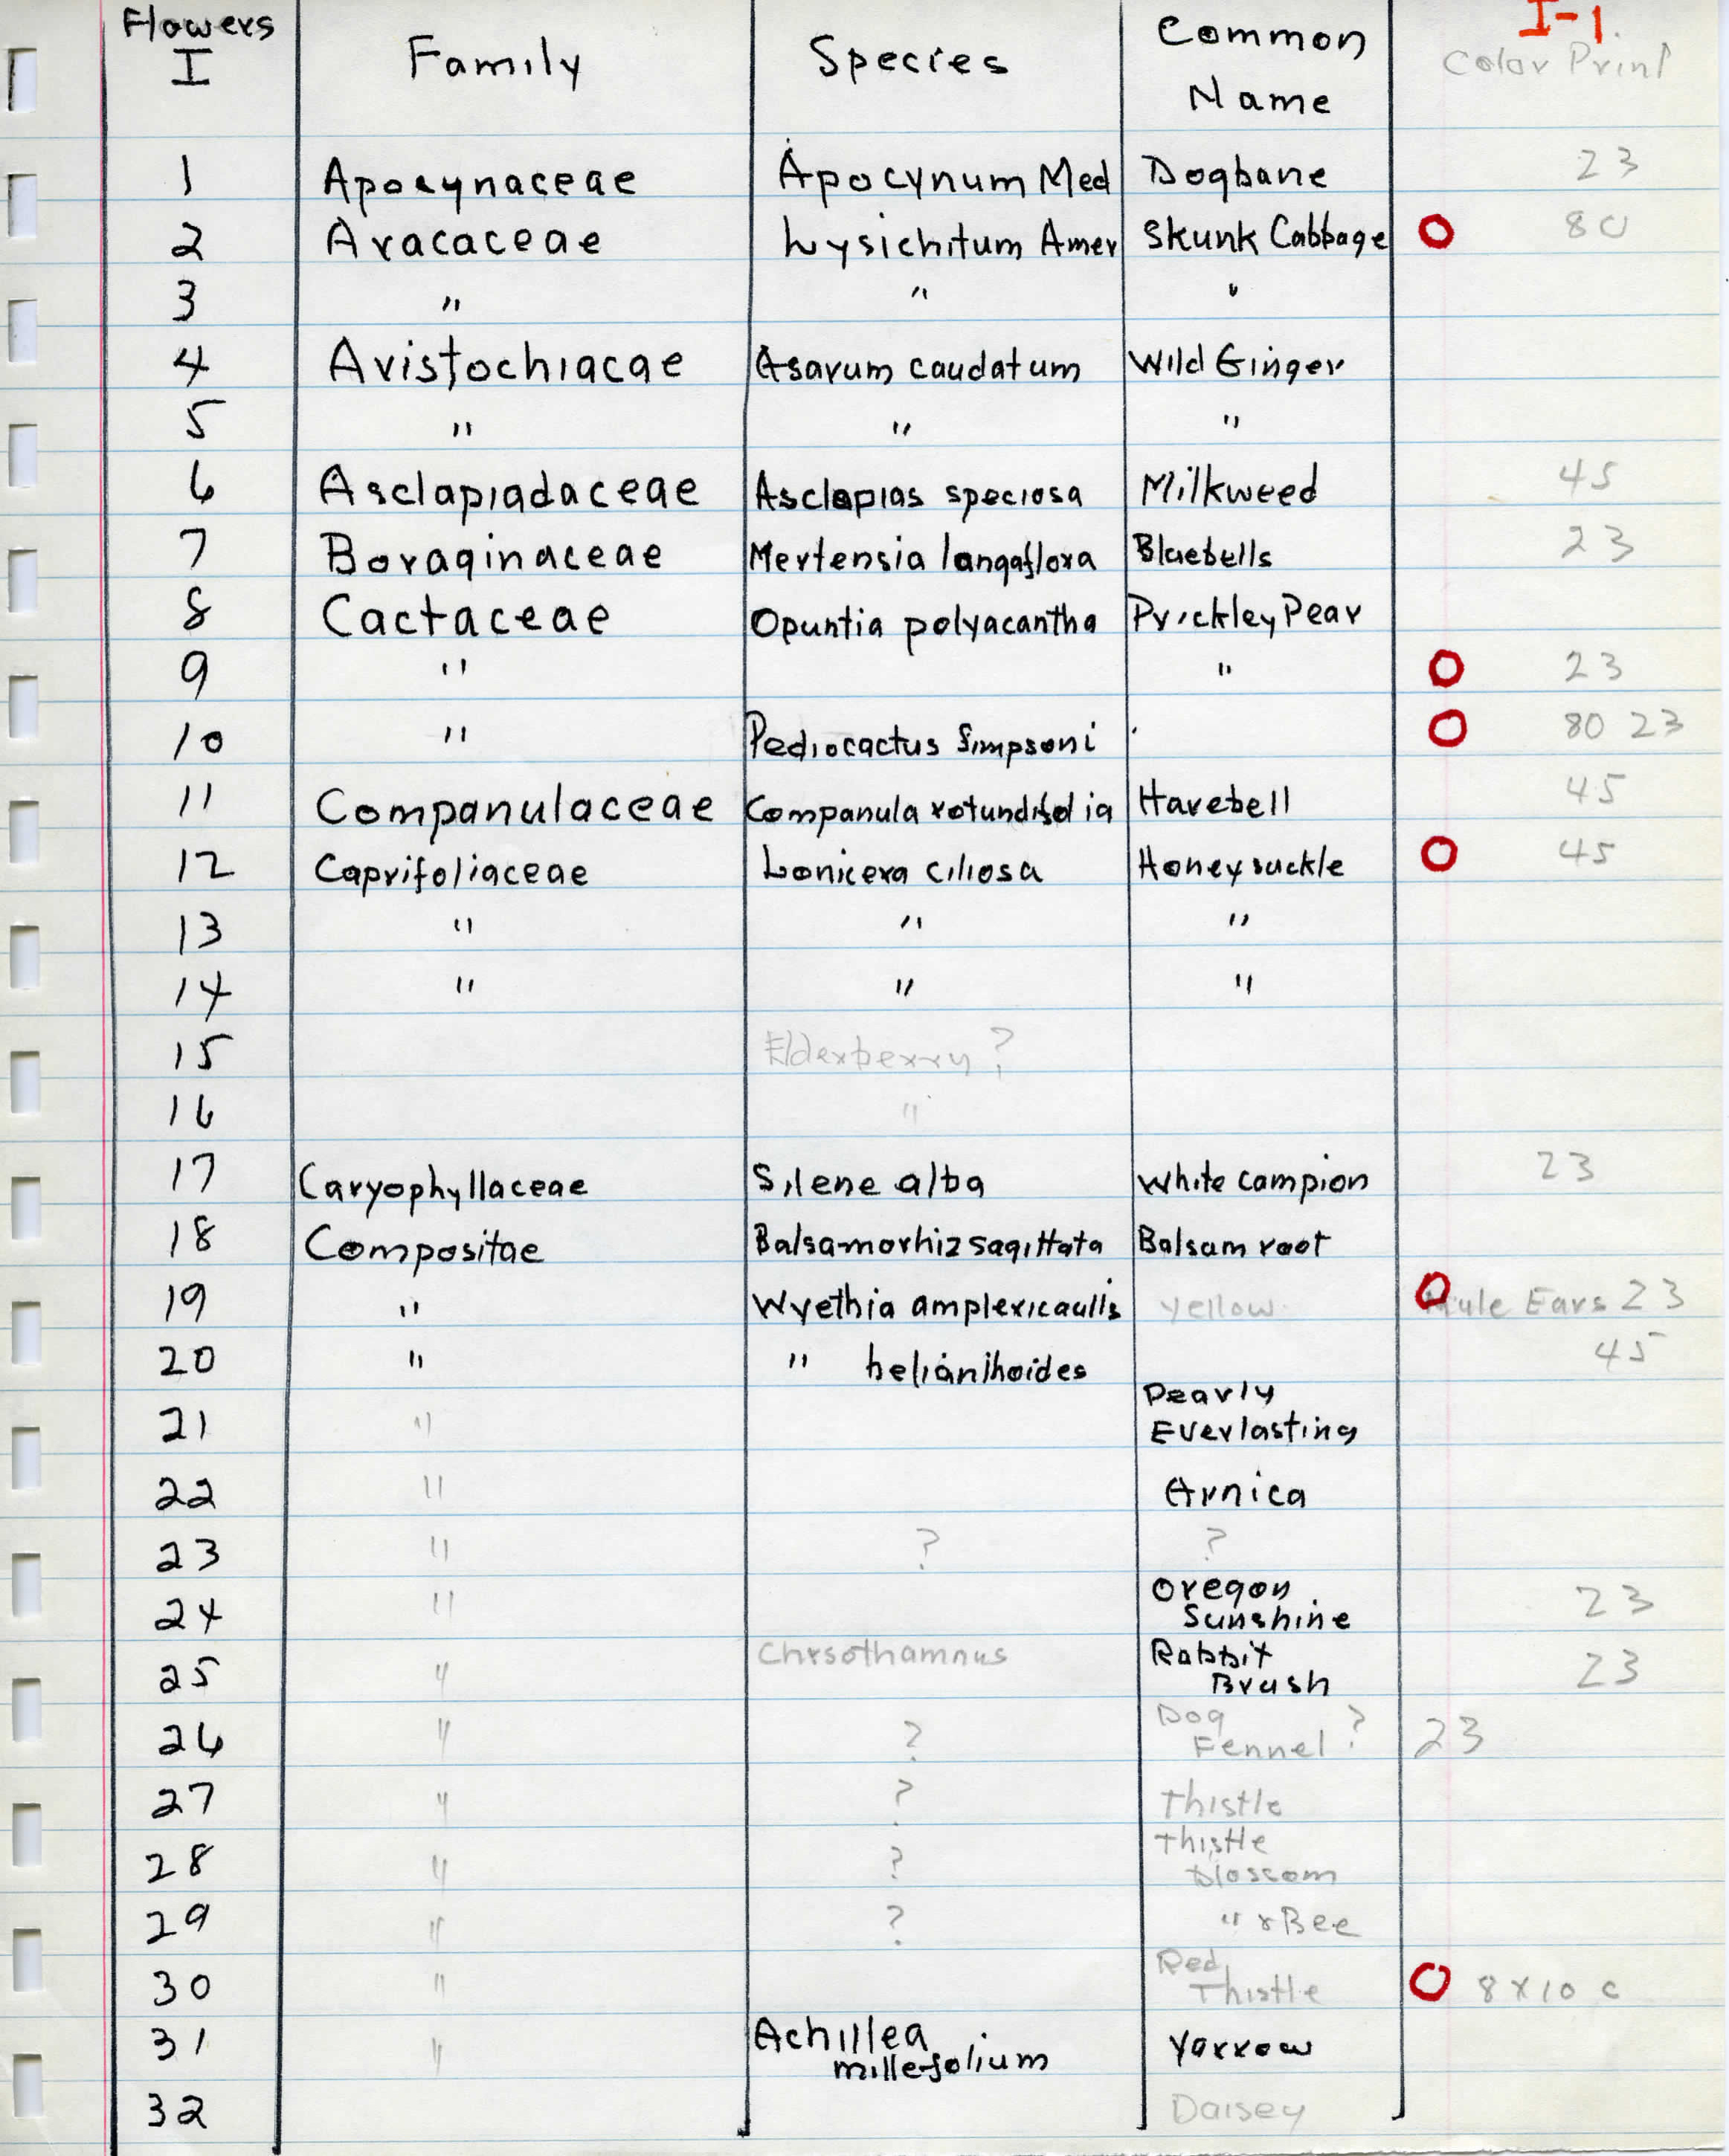 Flowers I Family Species Common Name I-1 Color Print
1 Apocynaceae Apocynum Med Dogbane 23
2 Aracaceae Lysichitum Amer Skunk Cabbage O 80
3 " " "
4 Aristochiacae Asarum caudatum Wild Ginger
5 " " "
6 Asclapiadaceae Asclepias speciosa Milkweed 45
7 Boraginaceae Mertensia langaflora Bluebells 23
8 Cactaceae Opuntia polyacantha Prickley Pear
9 " " O 23
10 " Pediocactus Simpsoni O 80 23
11 Companulaceae Companula rotundifolia Harebell 45
12 Caprifoliaceae Lonicera ciliosa Honeysuckle O 45
13 " " "
14 " " "
15 Elderberry ?
16 "
17 Caryophyllaceae Silene alba White Campion 23
18 Compositae Balsamorhiz sagittata Balsam root
19 " Wyethia amplexicaulis yellow O Mule Ears 23
20 " " helianthoides 45
21 " Pearly Everlasting
22 " Arnica
23 " ? ?
24 " Oregon Sunshine 23
25 " Chrsothamnus Rabbit Brush 23
26 " ? Dog Fennel ? 23
27 " ? Thistle
28 " ? Thistle blossom
29 " ? " & Bee
30 " Red Thistle O 8 X 10 C
31 " Achillea millefolium Yarrow
32 Daisey